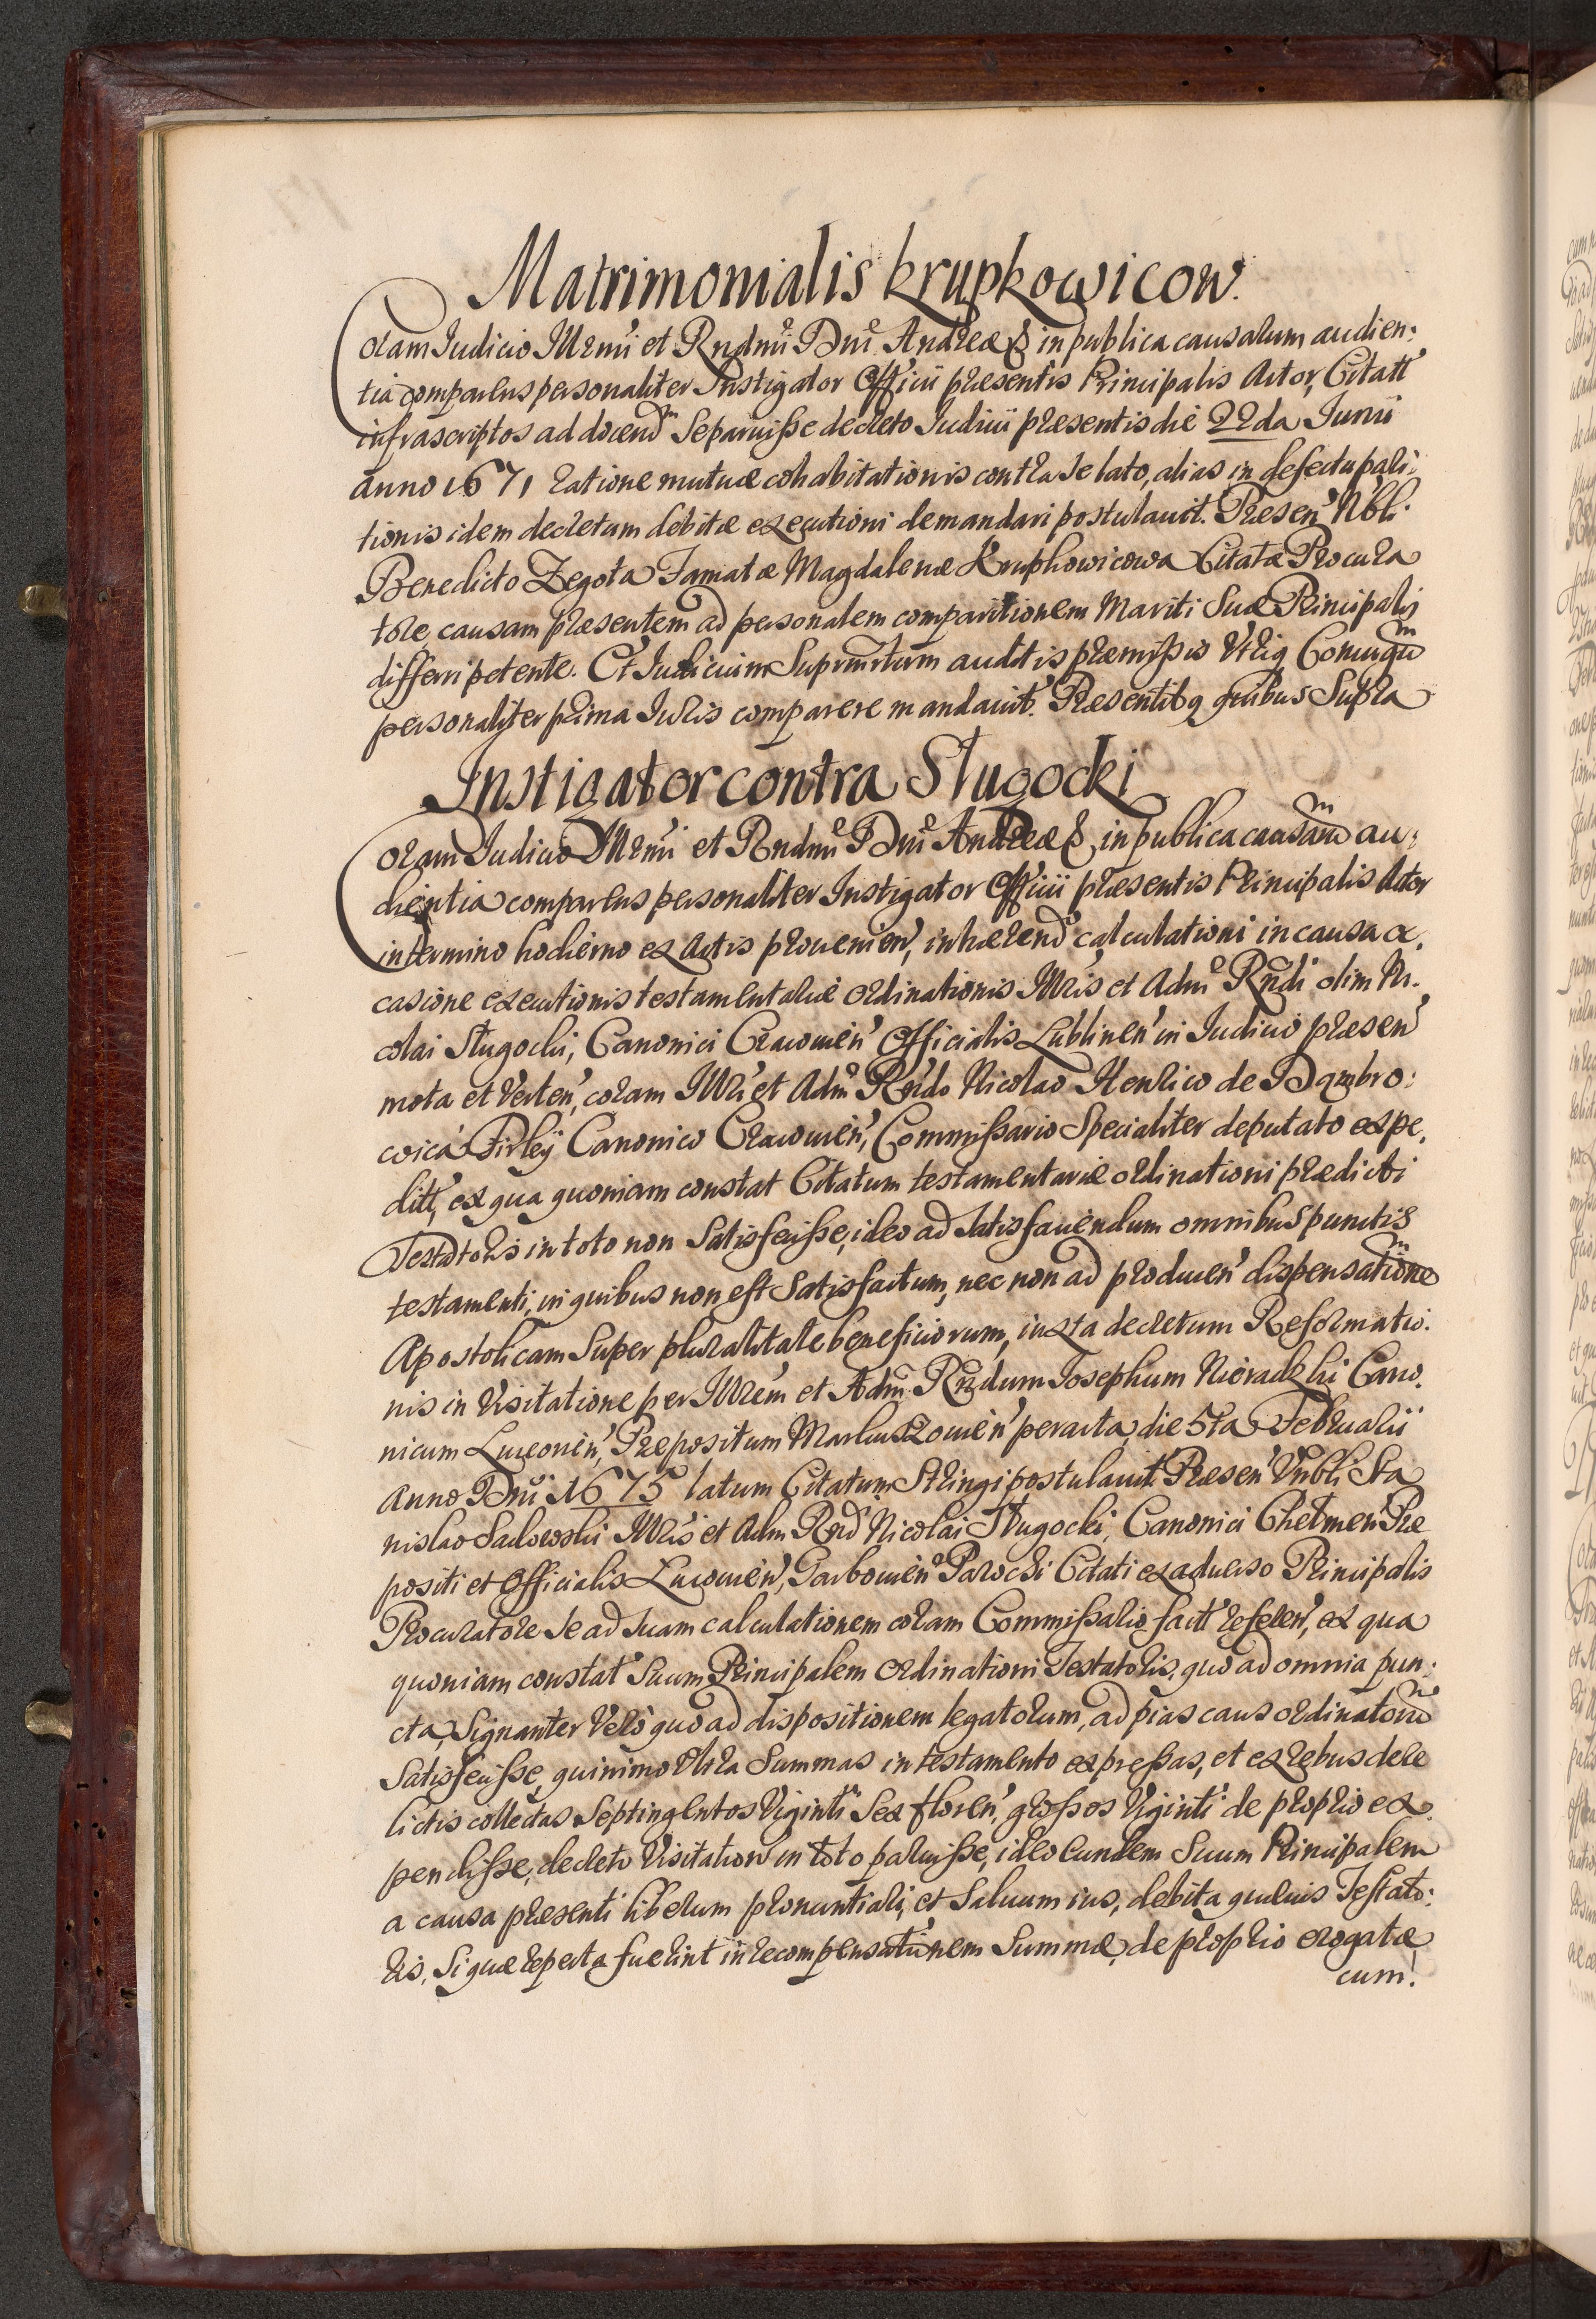 Matrimonialis Krupkowicow.
Coram Iudicio Illrmi et Rndmi Dni Andreæ & in publica causarum audien:
tia comparens personaliter Instigator Officii præsentis Principalis Actor, Citatt
infrascriptos ad docend Se paruisse decreto Iudicii præsentis die 22da Iunii
anno 1671 ratione mutuæ cohabitationis contra se lato, alias in defectu pari:
tionis idem decretum debitæ executioni demandari postulavit. Præsen Nbli
Benedicto Zegota Famatæ Magdalenæ Krupkowicowa Citatæ Procura
tore causam præsentem ad personalem comparitionem Mariti Suæ Principalis
differri petente. Et Iudicium Suprmrtum auditis præmissis Vtriq Coniugu
personaliter prima Iuris comparere mandavit. Præsentibq quibus Supra
Instigator contra Sługocki
Coram Iudicio Illrmi et Rndmi Dni Andreæ & in publica causaru au:
dientia comparens personaliter Instigator Officii præsentis Principalis Actor
in termino hodierno ex Actis provenien, inhærend calculationi in causa oc.
casione executionis testamentariæ ordinationis Illris et Adm Rndi olim Ni.
colai Sługocki, Canonici Cracovien Officialis Lublinen in Iudicio præsen
mota et verten, coram Illri et Adm Rndo Nicolao Henrico de Dąmbro:
wica Firley Canonico Cracovien, Commissario Specialiter deputato expe.
ditt, ex qua quoniam constat Citatum testamentariæ ordinationi prædicti
Testatoris in toto non Satisfecisse, ideo ad Satisfaciendum omnibus punctis
testamenti, in quibus non est Satisfactum, nec non ad producen dispensatione
Apostolicam Super pluralitate beneficiorum, iuxta decretum Reformatio:
nis in Visitatione per Illrem et Adm Rndum Iosephum Nieradzki Cano.
nicum Luceorien, Præpositum Markuszovien peracta, die 5ta Februarii
Anno Dni 1675 latum Citatum Stringi postulavit. Præsen Vnbli Sta
nislao Sadowski Illris et Adm Rnd Nicolai Sługocki, Canonici Chelmen Præ
positi et Officialis Lucovien, Garbovien Parochi Citati ex adverso Principalis
Procuratore Se ad Suam calculationem coram Commissario fact referen, ex qua
quoniam constat Suum Principalem Ordinationi Testatoris, quo ad omnia pun:
cta, Signanter Vero quo ad dispositionem legatorum, ad pias caus ordinatoru
Satisfecisse, quinimo Vltra Summas in testamento expressas, et ex rebus dere
lictis collectas Septingentos Viginti Sex floren, grossos Viginti de proprio ex.
pendisse, decreto Visitation in toto paruisse, ideo Eundem Suum Principalem
a causa præsenti liberum pronuntiari, et Saluum ius, debita quævis Testato:
ris, Si quæ reperta fuerint in recompensationem Summæ, de proprio erogatæ
cum!